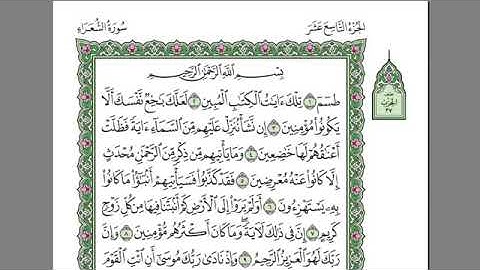 الجزء التاسع عشر
سورة الشعراء
بِسْمِ ٱللَّهِ ٱلرَّحْمَٰنِ ٱلرَّحِيمِ
طسٓمٓ ١ تِلْكَ ءَايَٰتُ ٱلْكِتَٰبِ ٱلْمُبِينِ ٢ لَعَلَّكَ بَٰخِعٌ نَّفْسَكَ أَلَّا
يَكُونُوا۟ مُؤْمِنِينَ ٣ إِن نَّشَأْ نُنَزِّلْ عَلَيْهِم مِّنَ ٱلسَّمَآءِ ءَايَةً فَظَلَّتْ
أَعْنَٰقُهُمْ لَهَا خَٰضِعِينَ ٤ وَمَا يَأْتِيهِم مِّن ذِكْرٍ مِّنَ ٱلرَّحْمَٰنِ مُحْدَثٍ
إِلَّا كَانُوا۟ عَنْهُ مُعْرِضِينَ ٥ فَقَدْ كَذَّبُوا۟ فَسَيَأْتِيهِمْ أَنۢبَٰٓؤُا۟ مَا كَانُوا۟
بِهِۦ يَسْتَهْزِءُونَ ٦ أَوَلَمْ يَرَوْا۟ إِلَى ٱلْأَرْضِ كَمْ أَنۢبَتْنَا فِيهَا مِن كُلِّ زَوْجٍ
كَرِيمٍ ٧ إِنَّ فِى ذَٰلِكَ لَءَايَةً وَمَا كَانَ أَكْثَرُهُم مُّؤْمِنِينَ ٨ وَإِنَّ
رَبَّكَ لَهُوَ ٱلْعَزِيزُ ٱلرَّحِيمُ ٩ وَإِذْ نَادَىٰ رَبُّكَ مُوسَىٰٓ أَنِ ٱئْتِ ٱلْقَوْمَ
الحزب
٣٧